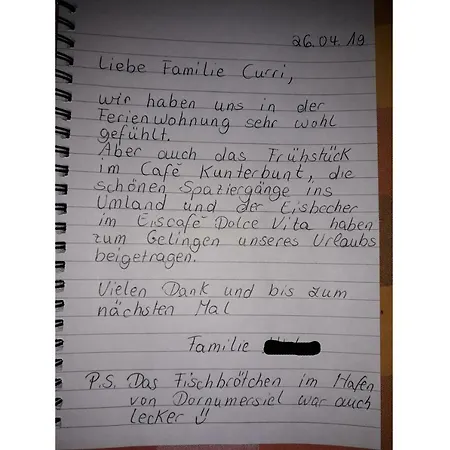 26.04.19
Liebe Familie Curri,
wir haben uns in der
Ferienwohnung sehr wohl
gefühlt.
Aber auch das Frühstück
im Café Kunterbunt, die
schönen Spaziergänge ins
Umland und der Eisbecher
im Eiscafé Dolce Vita haben
zum Gelingen unseres Urlaubs
beigetragen.
Vielen Dank und bis zum
nächsten Mal
Familie
P.S. Das Fischbrötchen im Hafen
von Dornumersiel war auch
lecker ☺